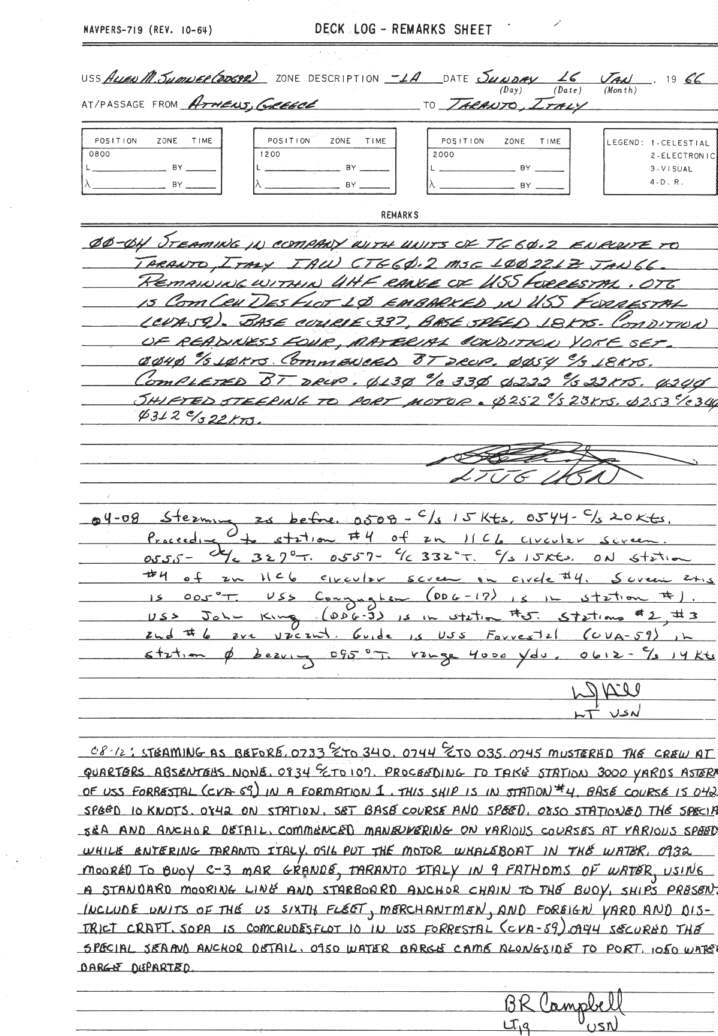 NAVPERS-719 (REV. 10-64)
DECK LOG - REMARKS SHEET
USS ALLEN M. SUMNER (DD692) ZONE DESCRIPTION -1A DATE SUNDAY 16 JAN , 19 66
(Day) (Date) (Month)
AT/PASSAGE FROM ATHENS, GREECE TO TARANTO, ITALY
POSITION ZONE TIME
0800
L BY
λ BY
POSITION ZONE TIME
1200
L BY
λ BY
POSITION ZONE TIME
2000
L BY
λ BY
LEGEND: 1-CELESTIAL
2-ELECTRONIC
3-VISUAL
4-D. R.
REMARKS
00-04 STEAMING IN COMPANY WITH UNITS OF TG 60.2 ENROUTE TO
TARANTO, ITALY IAW CTG 60.2 MSG 100221Z JAN 66.
REMAINING WITHIN UHF RANGE OF USS FORRESTAL. OTC
IS COMCRUDESFLOT 10 EMBARKED IN USS FORRESTAL
(CVA 59). BASE COURSE 337, BASE SPEED 18KTS. CONDITION
OF READINESS FOUR, MATERIAL CONDITION YOKE SET.
0040 C/S 10KTS. COMMENCED BT DROP. 0054 C/S 18KTS.
COMPLETED BT DROP. 0130 C/C 330 0222 C/S 22KTS. 0240
SHIFTED STEERING TO PORT MOTOR. 0252 C/S 23KTS. 0253 C/C 340
0312 C/S 22KTS.
LTJG USN
04-08 Steaming as before. 0508- C/S 15 Kts, 0544- C/S 20 Kts,
Proceeding to station #4 of an 11C6 circular screen.
0555- C/C 327°T. 0557- C/C 332°T. C/S 15Kts. ON station
#4 of an 11C6 circular screen on circle #4. Screen axis
is 005°T. USS Conyngham (DDG-17) is in station #1.
USS John King (DDG-3) is in station #5. Stations #2, #3
and #6 are vacant. Guide is USS Forrestal (CVA-59) in
station 0 bearing 095°T. range 4000 yds. 0612- C/S 14 Kts
WJ Hill
LT USN
08-12: STEAMING AS BEFORE. 0733 C/C TO 340. 0744 C/C TO 035. 0745 MUSTERED THE CREW AT
QUARTERS ABSENTEES NONE. 0834 C/C TO 107. PROCEEDING TO TAKE STATION 3000 YARDS ASTERN
OF USS FORRESTAL (CVA-59) IN A FORMATION 1. THIS SHIP IS IN STATION #4. BASE COURSE IS 042
SPEED 10 KNOTS. 0842 ON STATION. SET BASE COURSE AND SPEED. 0850 STATIONED THE SPECIA
SEA AND ANCHOR DETAIL. COMMENCED MANEUVERING ON VARIOUS COURSES AT VARIOUS SPEED
WHILE ENTERING TARANTO ITALY. 0916 PUT THE MOTOR WHALEBOAT IN THE WATER. 0932
MOORED TO BUOY C-3 MAR GRANDE, TARANTO ITALY IN 9 FATHOMS OF WATER, USING
A STANDARD MOORING LINE AND STARBOARD ANCHOR CHAIN TO THE BUOY. SHIPS PRESENT
INCLUDE UNITS OF THE US SIXTH FLEET, MERCHANTMEN, AND FOREIGN YARD AND DIS-
TRICT CRAFT. SOPA IS COMCRUDESFLOT 10 IN USS FORRESTAL (CVA-59). 0944 SECURED THE
SPECIAL SEA AND ANCHOR DETAIL. 0950 WATER BARGE CAME ALONGSIDE TO PORT. 1050 WATE
BARGE DEPARTED.
BR Campbell
LTjg USN